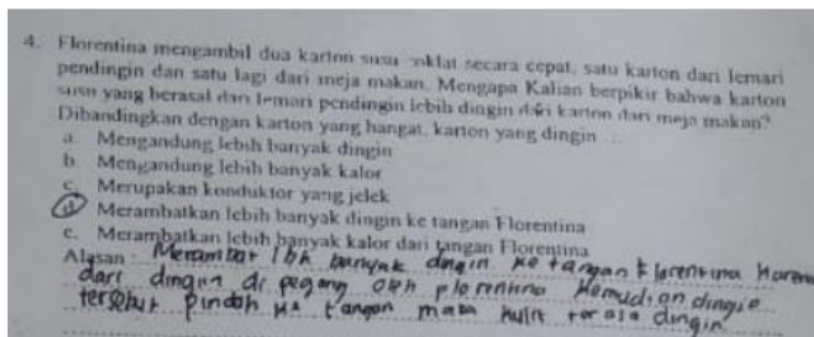 4. Florentina mengambil dua karton susu coklat secara cepat, satu karton dari lemari
pendingin dan satu lagi dari meja makan. Mengapa Kalian berpikir bahwa karton
susu yang berasal dari lemari pendingin lebih dingin dari karton dari meja makan?
Dibandingkan dengan karton yang hangat, karton yang dingin ...
a. Mengandung lebih banyak dingin
b. Mengandung lebih banyak kalor
c. Merupakan konduktor yang jelek
d. Merambatkan lebih banyak dingin ke tangan Florentina
e. Merambatkan lebih banyak kalor dari tangan Florentina
Alasan : Merambat lbh banyak dingin ke tangan Florentina karena
dari dingin di pegang oleh plorentina kemudian dingin
tersebut pindah ke tangan maka kulit terasa dingin